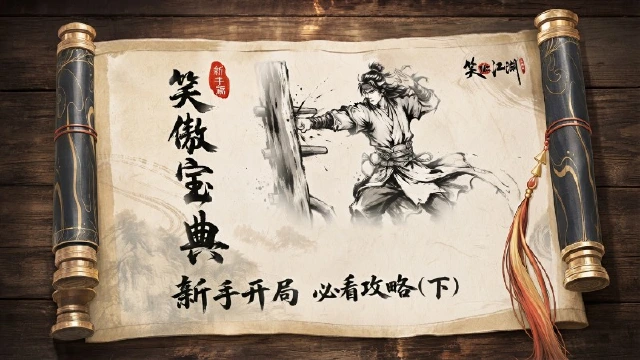 笑傲宝典
新手篇
新手开局 必看攻略(下)
笑傲江湖